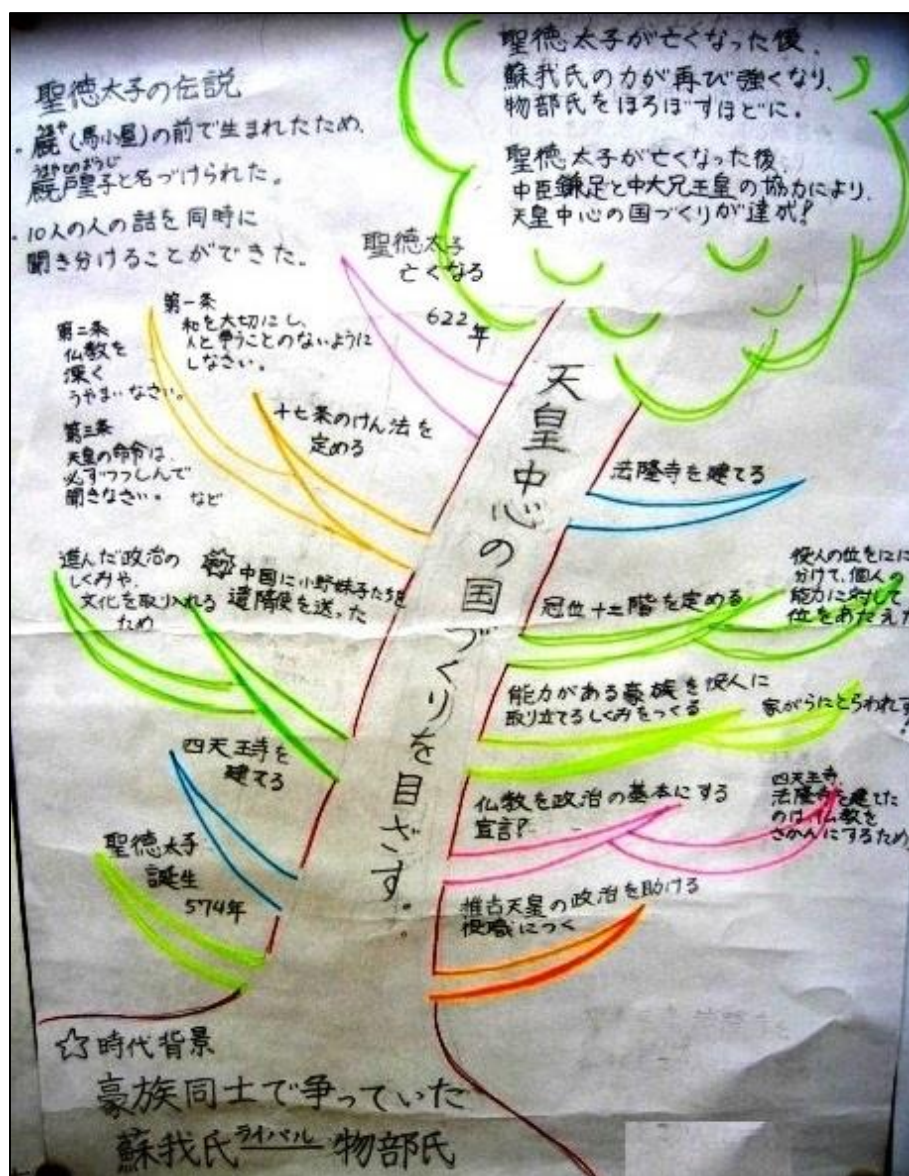 聖徳太子の伝説
・厩(馬小屋)の前で生まれたため、
厩戸聖子と名づけられた。
・10人の人の話を同時に
聞き分けることができた。
聖徳太子が亡くなった後、
蘇我氏の力が再び強くなり、
物部氏をほろぼすほどに。
聖徳太子が亡くなった後、
中臣鎌足と中大兄王皇の協力により、
天皇中心の国づくりが達成!
聖徳太子
亡くなる
622年
第一条
和を大切にし、
人と争うことのないように
しなさい。
第二条
仏教を
深く
うやまいなさい。
第三条
天皇の命令は、
必ずつつしんで
聞きなさい。 など
十七条のけん法を
定める
進んだ政治の
しくみや、
文化を取り入れる
ため
中国に小野妹子たちを
遣隋使を送った
四天王寺を
建てる
聖徳太子
誕生
574年
天皇中心の国づくりを目ざす。
法隆寺を建てる
冠位十二階を定める
役人の位を12に
分けて、個人の
能力に対して
位をあたえた
能力がある豪族を役人に
取り立てるしくみをつくる
家がらにとらわれず
仏教を政治の基本にする
宣言?
四天王寺
法隆寺を建てた
のは、仏教を
さかんにするため
推古天皇の政治を助ける
役職につく
☆時代背景
豪族同士で争っていた
蘇我氏 ライバル 物部氏